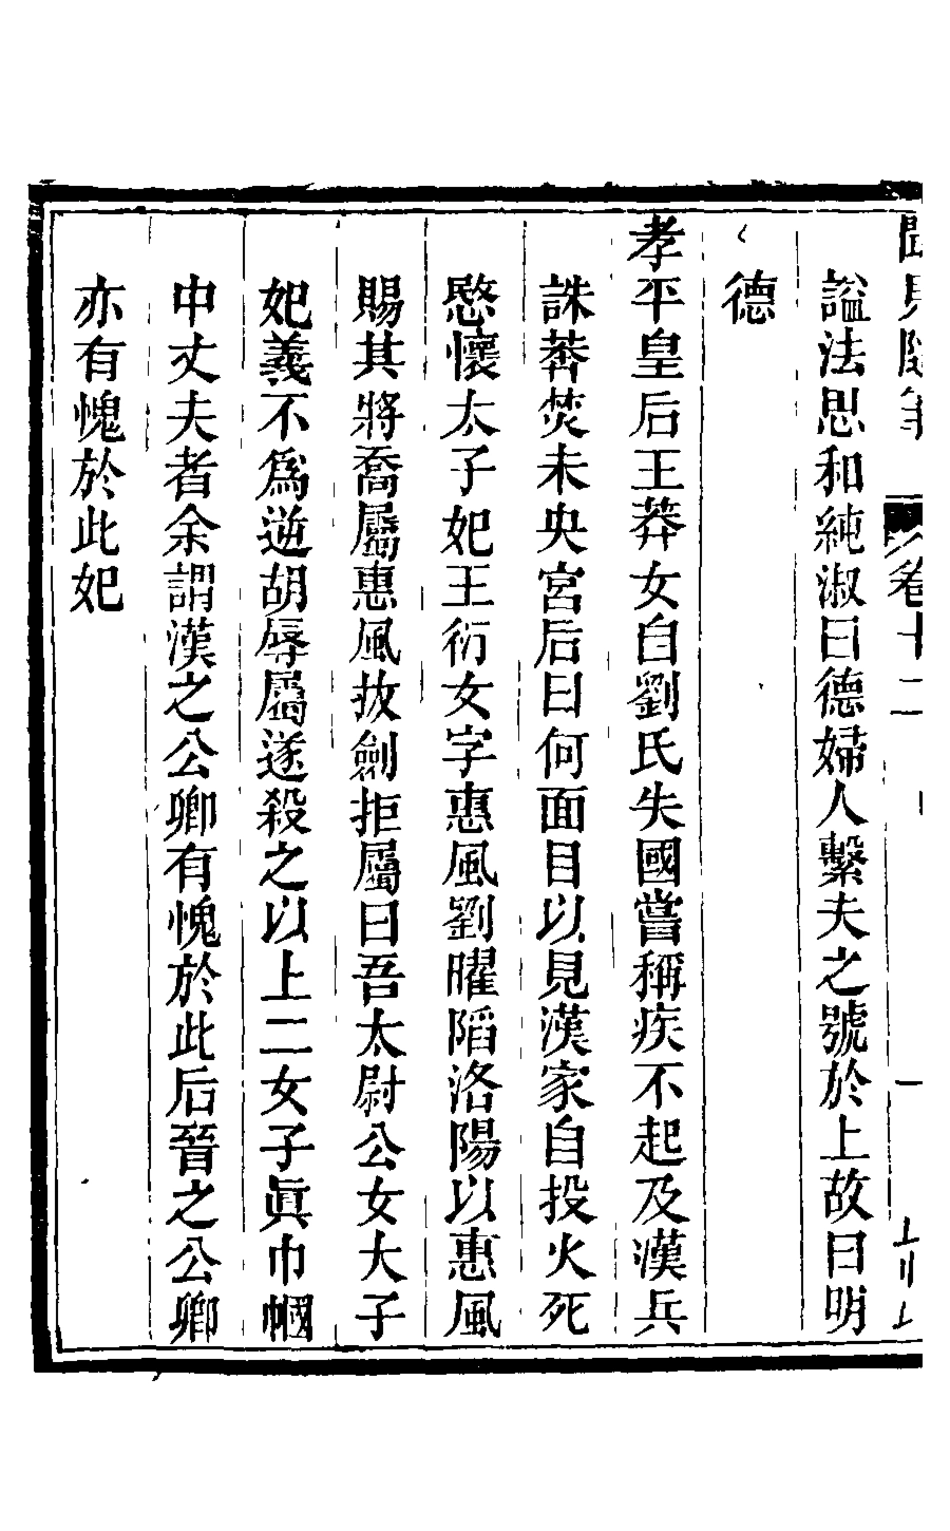 卷十二
謚法思和純淑曰德婦人繫夫之號於上故曰明
德
孝平皇后王莽女自劉氏失國嘗稱疾不起及漢兵
誅莽焚未央宮后曰何面目以見漢家自投火死
愍懷太子妃王衍女字惠風劉曜陷洛陽以惠風
賜其將喬屬惠風拔劍拒屬曰吾太尉公女大子
妃義不為逆胡辱屬遂殺之以上二女子眞巾幗
中丈夫者余謂漢之公卿有愧於此后晉之公卿
亦有愧於此妃